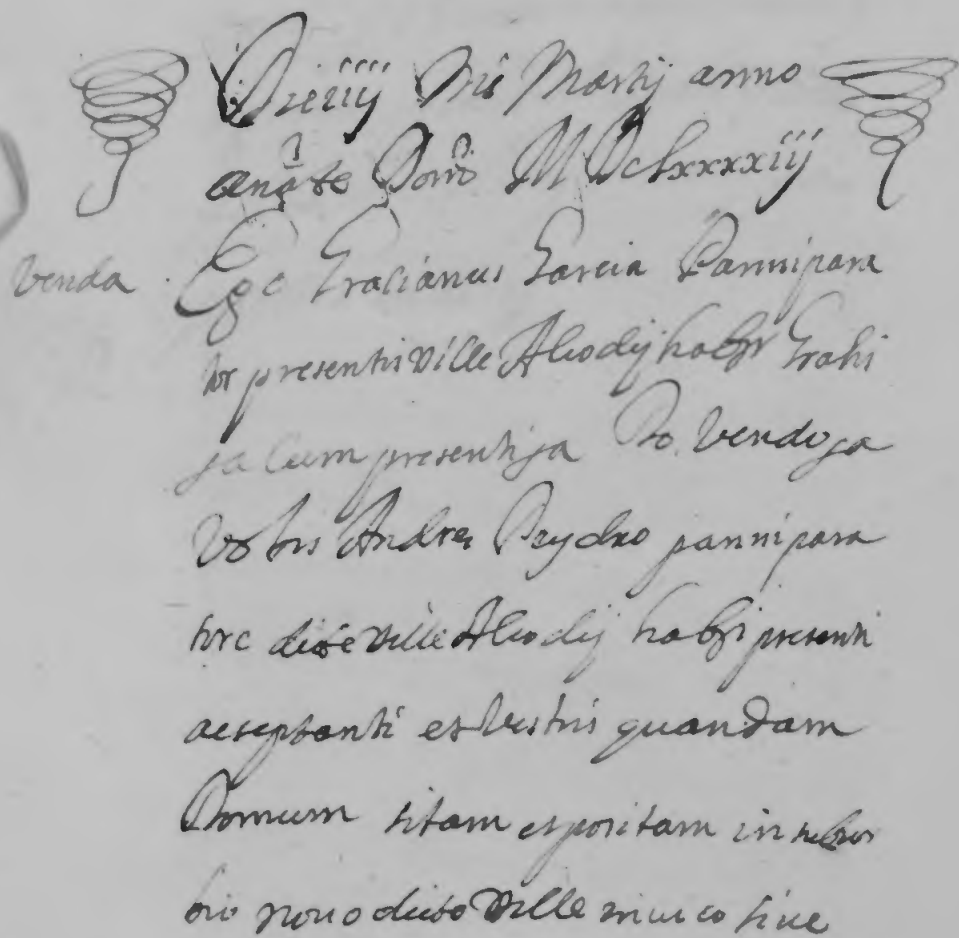 Die iiij Mês Martij anno
a natte Domi MDclxxxxiij
Venda
Ego Gracianus Garcia Pannipara
tor presentis ville Alcodij habr Grahi
sa cum presenti ja Do. Vendo ja
Vobis Andree Peydro pannipara
tore dicte ville Alcodij habri presenti
acseptanti et Vestris quandam
Domum sitam et positam in subur
bio nouo dicte Ville in vico sive